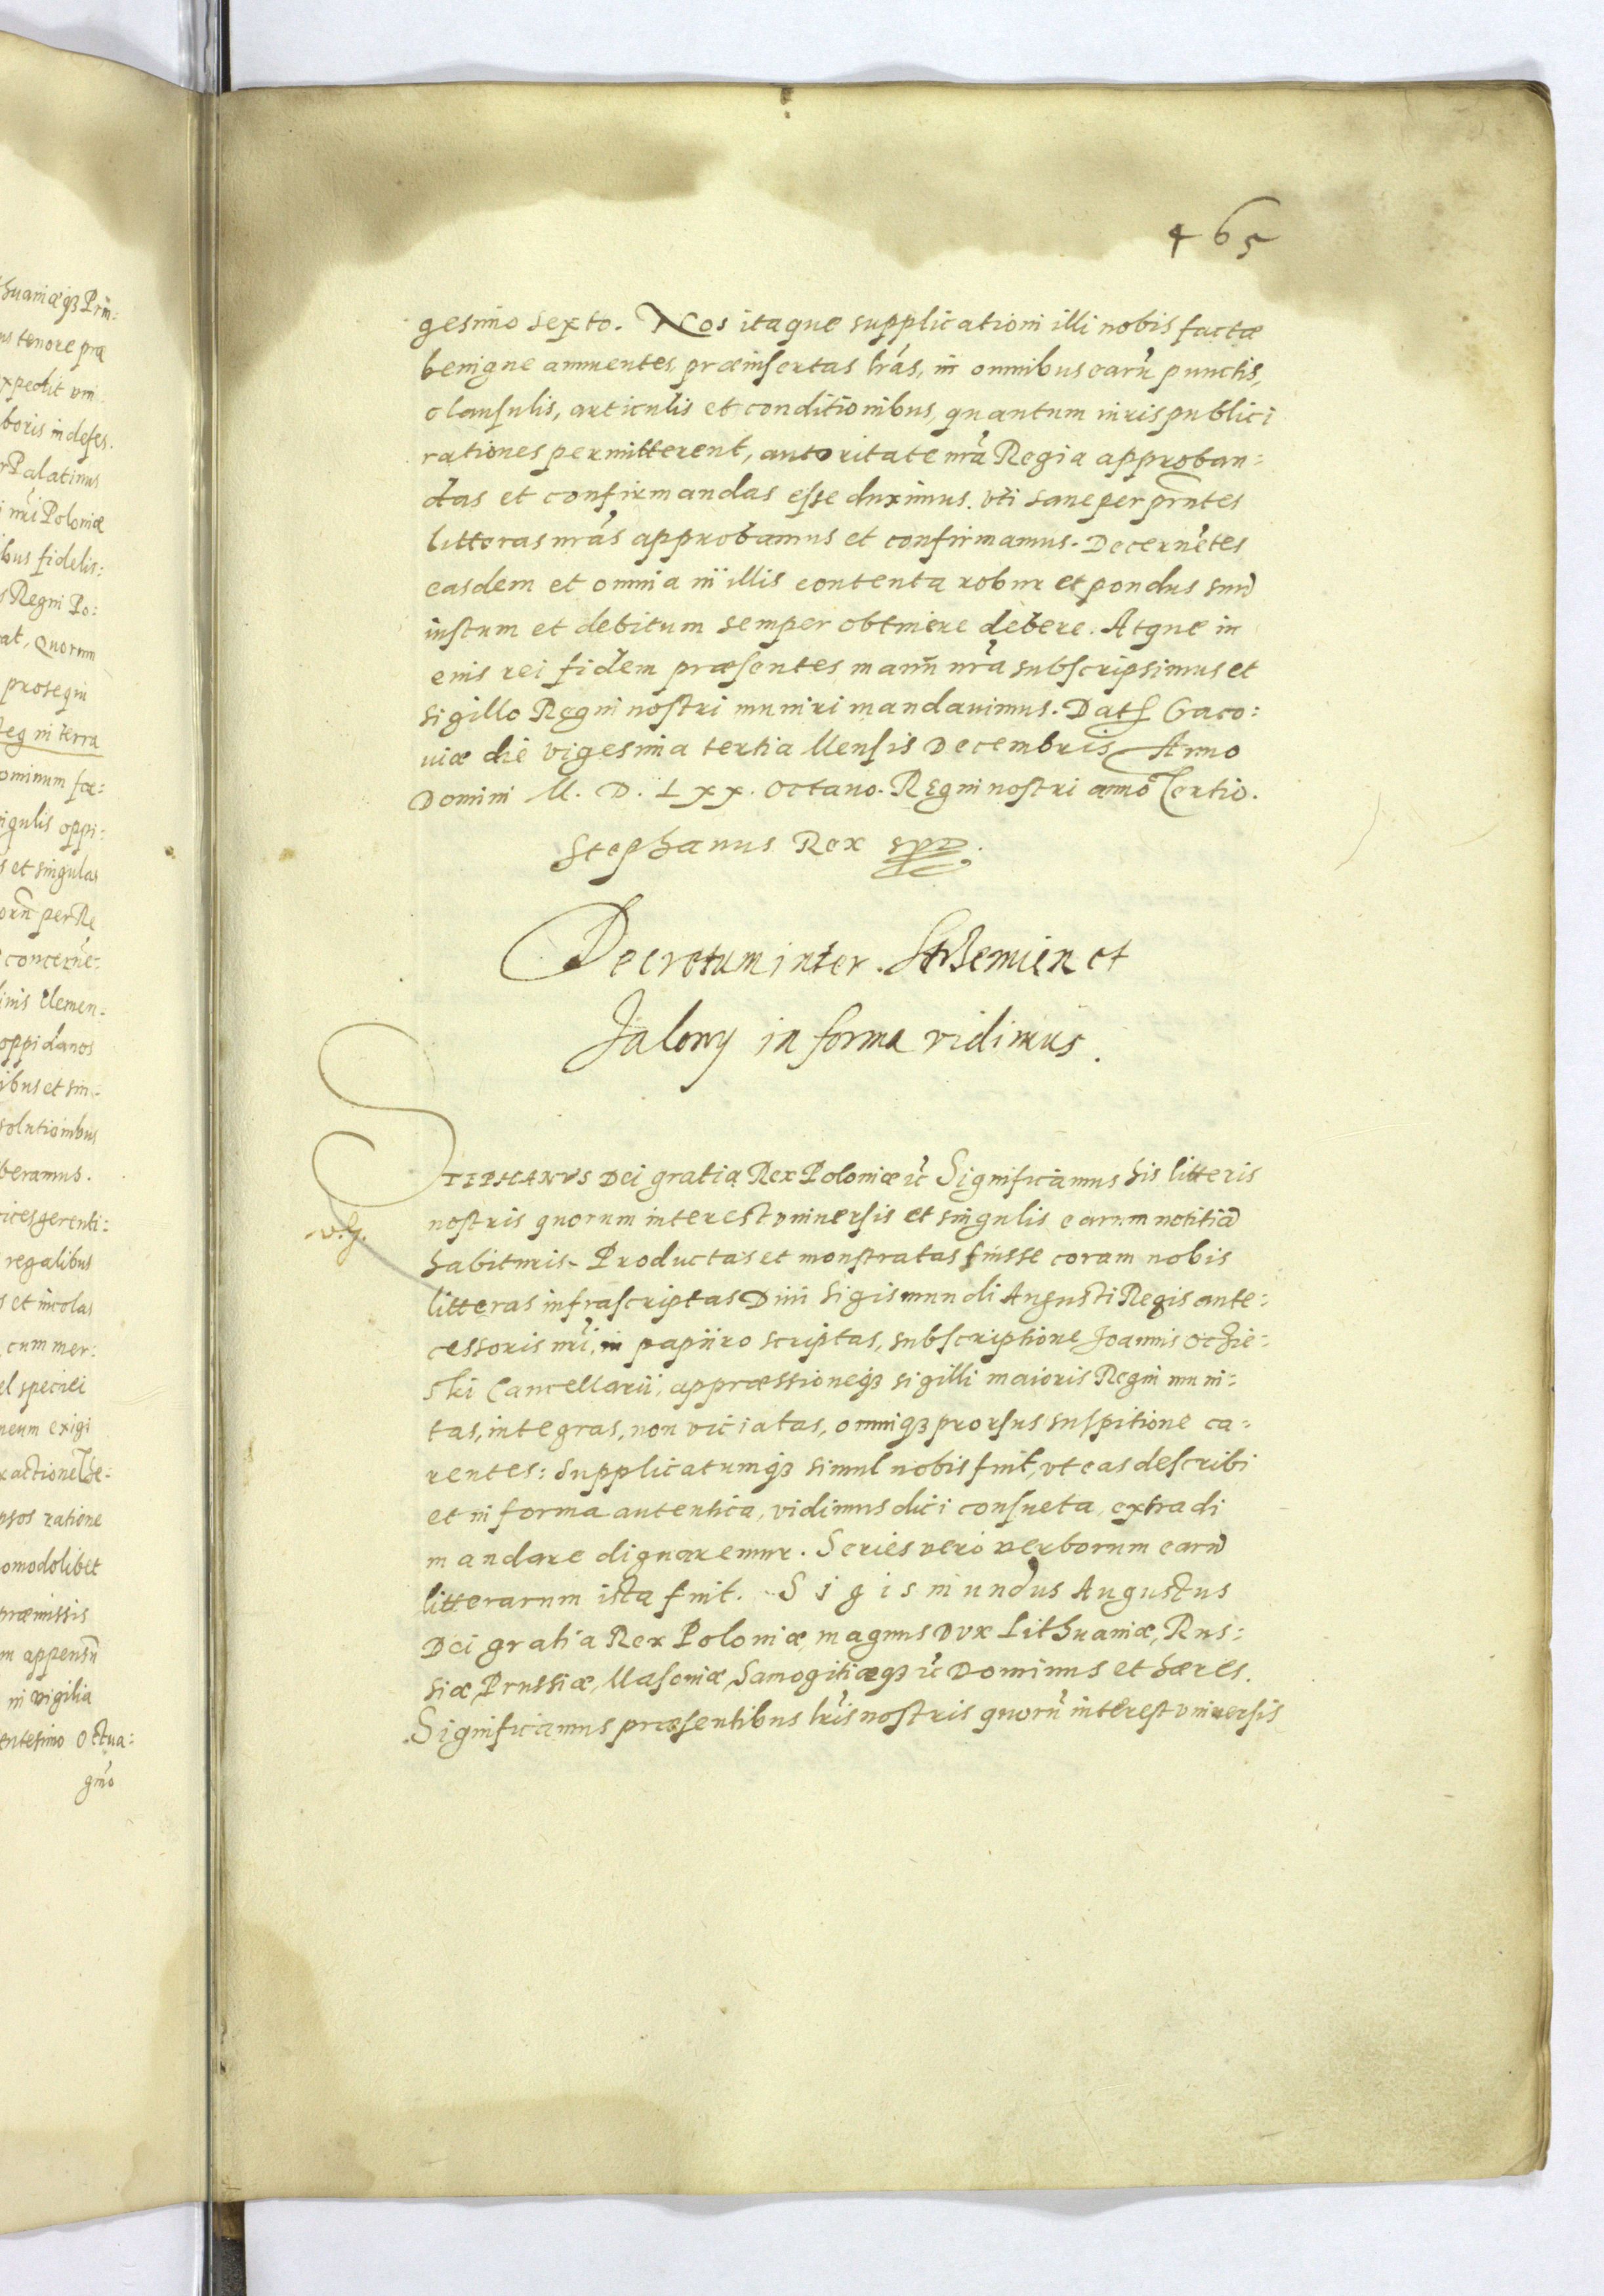 465
gesimo sexto. Nos itaque supplicationi illi nobis factæ
benigne annuentes, præinsertas lrãs, in omnibus earũ punctis,
clausulis, articulis et conditionibus, quantum iuris publici
rationes permitterent, autoritate nrã Regia approban:
das et confirmandas esse duximus. vti sane per prñtes
litteras nrãs approbamus et confirmamus. Decernẽtes
easdem et omnia in illis contenta robur et pondus suũ
iustum et debitum semper obtinere debere. Atque in
euis rei fidem præsentes manũ nrã subscripsimus et
sigillo Regni nostri muniri mandauimus. Dat Craco:
uiæ die vigesima tertia Mensis Decembris Anno
Domini M. D. Lxx. octauo. Regni nostri anno Tertio.
Stephanus Rex
Decretum inter et
Jalony in forma vidimus.
STEPHANVS Dei gratia Rex Poloniæ ic̃ Significamus his litteris
nostris quorum interest vniuersis et singulis earum notitiã
v.g.
habituris. Productas et monstratas fuisse coram nobis
litteras infrascriptas Diui Sigismundi Augusti Regis ante:
cessoris nrĩ, in papiiro scriptas, subscriptione Joannis Oczie:
ski Cancellarii, appræssioneq3 sigilli maioris Regni muni:
tas, integras, non viciatas, omniq3 prorsus suspitione ca:
rentes: Supplicatumq3 simul nobis fuit, vt eas describi
et in forma autentica, vidimus dici consueta, extradi
mandare dignaremur. Series vero verborum earũ
litterarum ista fuit. Sigismundus Augustus
Dei gratia Rex Poloniæ, magnus Dux Lithuaniæ, Rus:
siæ, Prussiæ, Masouiæ, Samogitiæq3 ic̃ Dominus et hæres.
Significamus præsentibus lrĩs nostris quorũ interest vniuersis